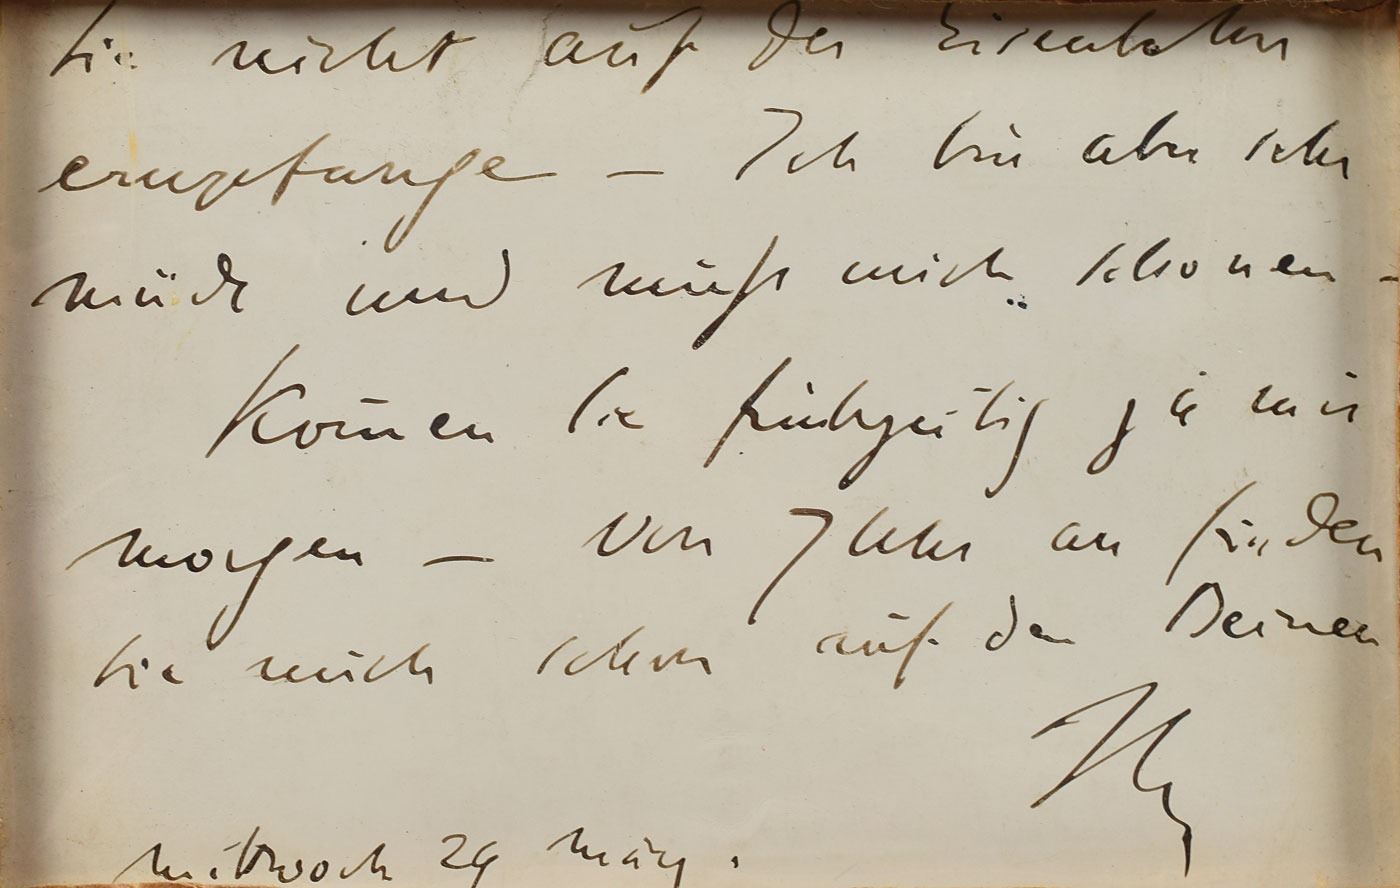 Sie nicht auf der Eisenbahn
empfange — Ich bin aber sehr
müde und muß mich schonen -
Kom̄en Sie frühzeitig zu mir
morgen — Von 7 Uhr an finden
Sie mich schon auf den Beinen
Mittwoch 29 März.